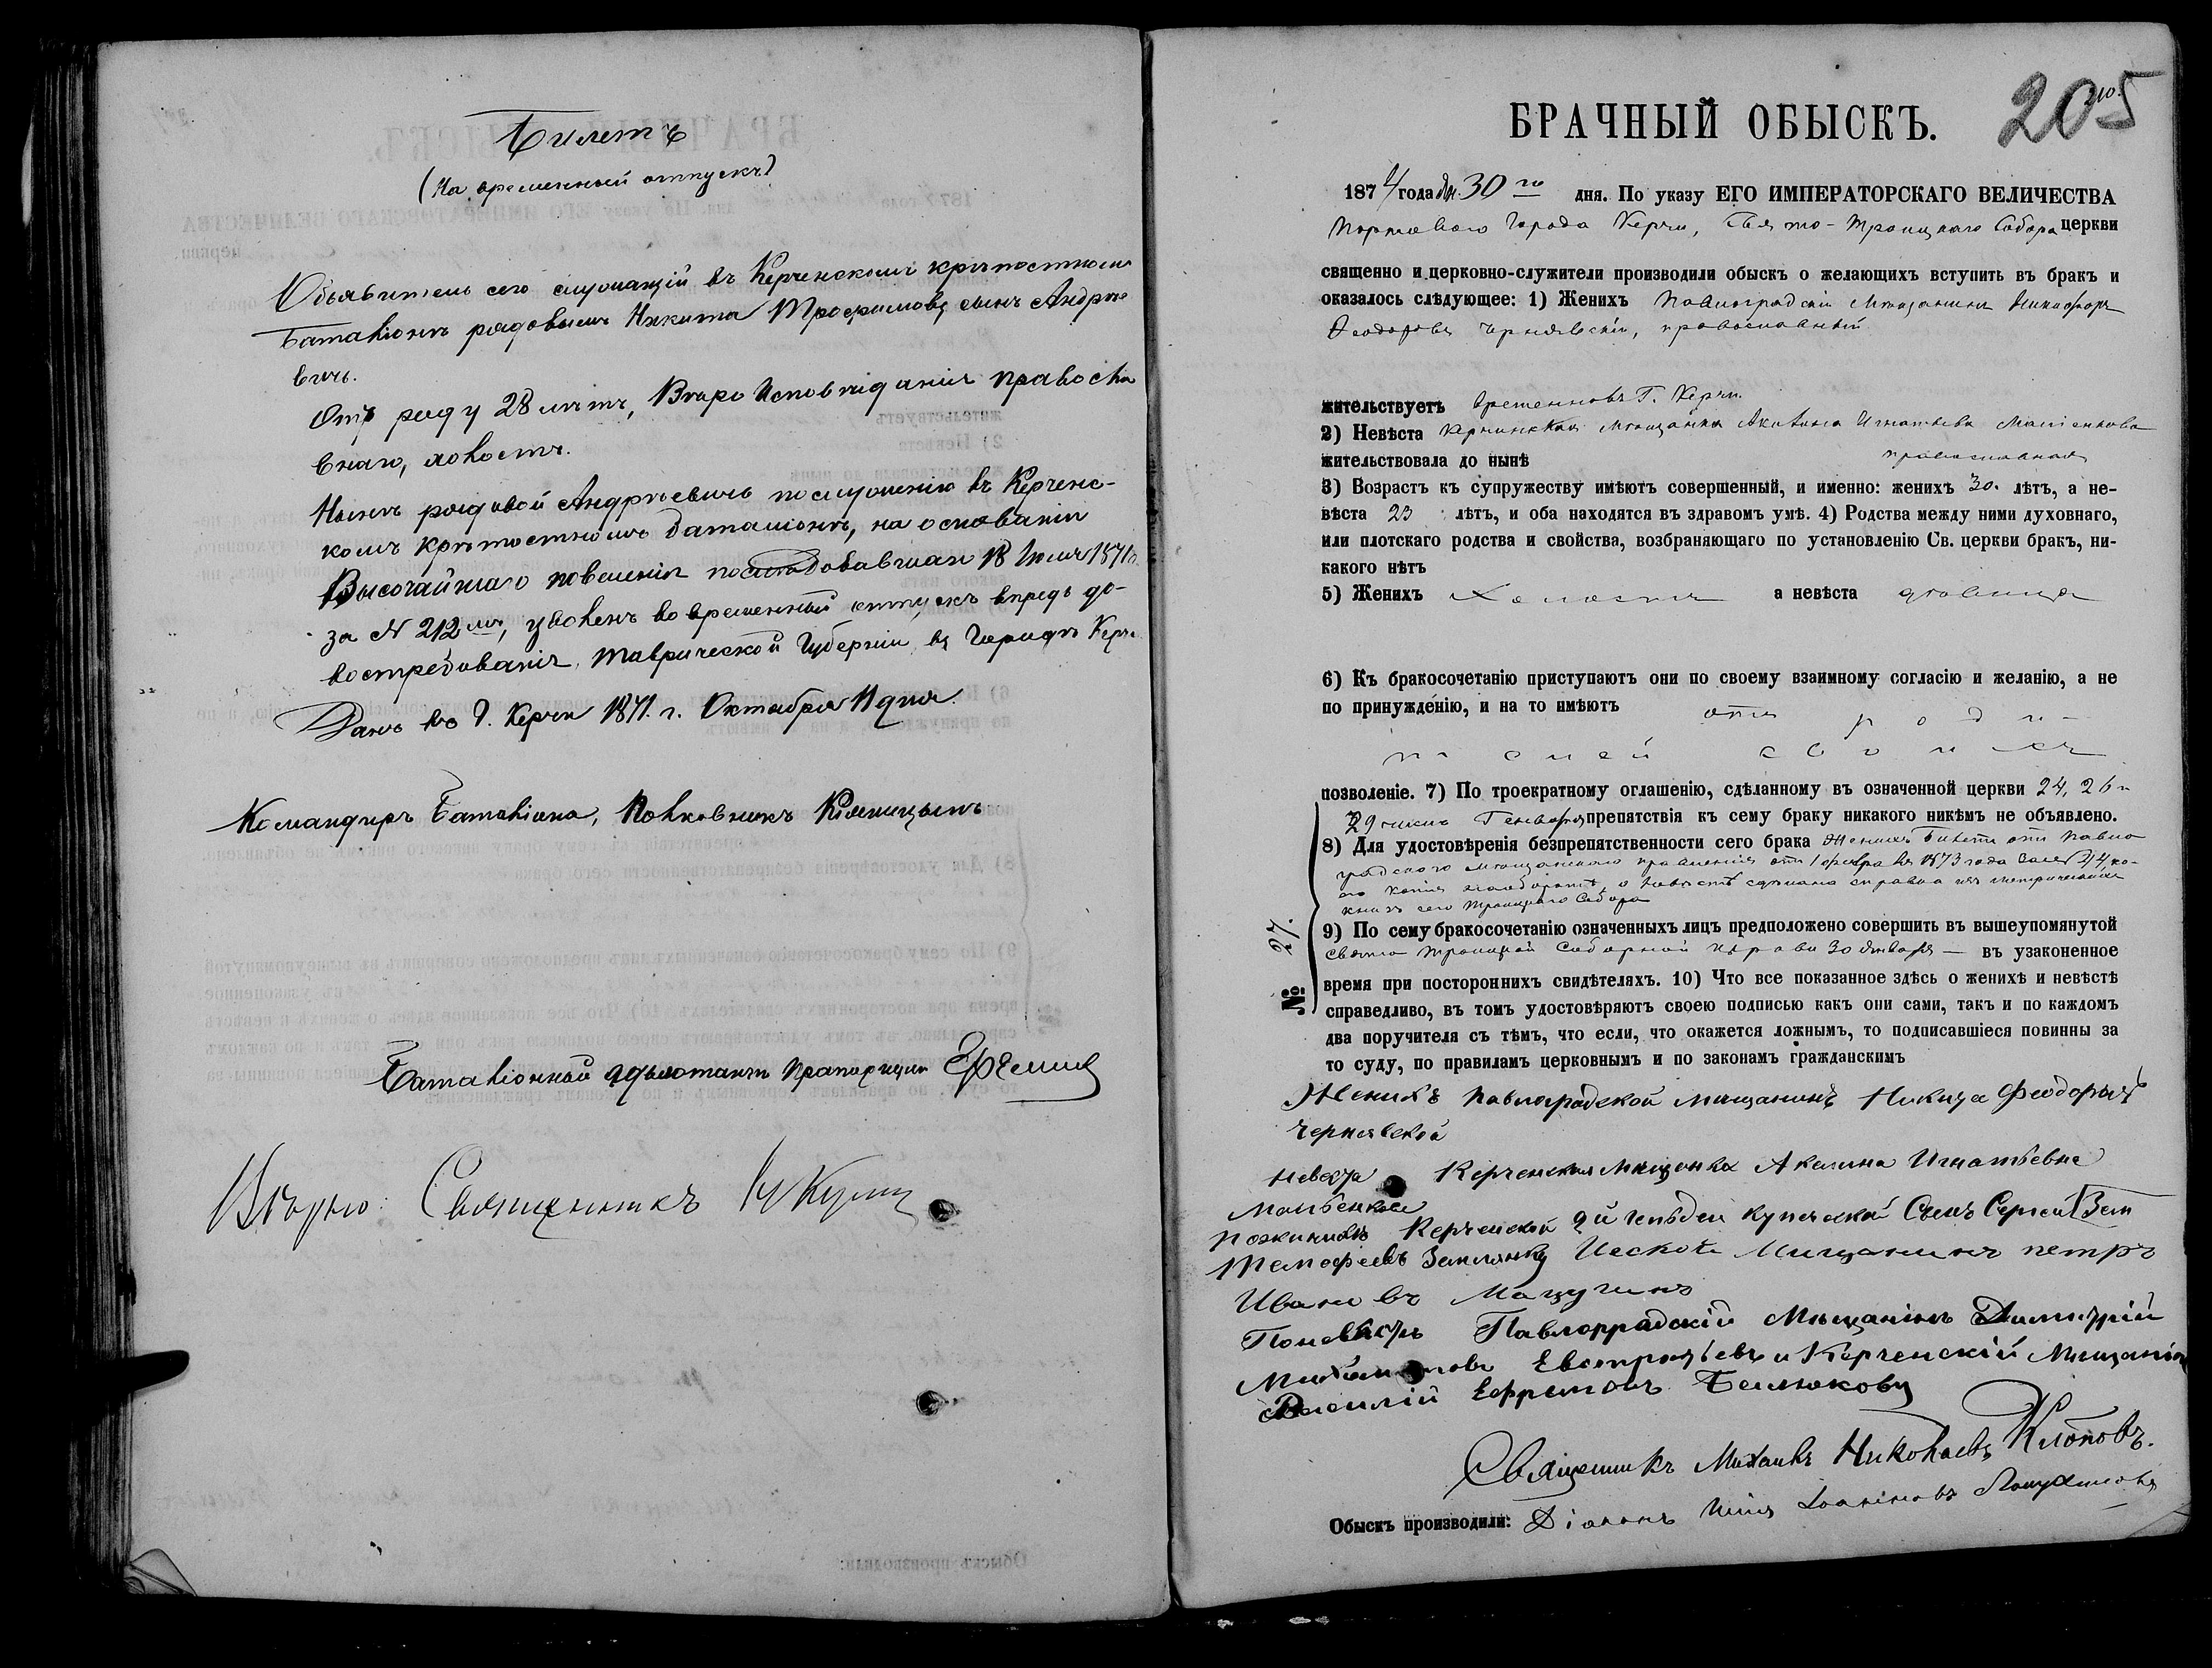 Билетъ
(На временный отпускъ)
Объявитель сего служащій въ Керченскомъ крѣпостномъ
Баталіонѣ рядовымъ Никита Трофимовъ сынъ Андрѣе
вичъ.
Отъ роду 28 лѣтъ, Вѣро Исповѣданія правосла
внаго, холостъ.
Нынѣ рядовой Андрѣевичъ по служенію въ Керченс-
комъ крѣпостномъ баталіонѣ, на основаніи
Высочайшаго повеленія последовавшаго 18 Іюля 1871
за № 212мъ, уволенъ во временный отпускъ впредь до-
востребованія, Таврической Губерніи, въ Городѣ Керчь
Данъ въ г. Керчи 1871. г. Октября 11 дня.
Командиръ Баталіона, Полковникъ
Баталіонный адъютантъ Прапорщикъ
Вѣрно: Священникъ
БРАЧНЫЙ ОБЫСКЪ.
205
1874 года Ян. 30го дня. По указу ЕГО ИМПЕРАТОРСКАГО ВЕЛИЧЕСТВА
Портоваго Города Керчи, Свято-Троицкаго Собора церкви
священно и церковно-служители производили обыскъ о желающихъ вступить въ бракъ и
оказалось слѣдующее: 1) Женихъ Павлоградскій Мѣщанинъ Никифоръ
Ѳеодоровъ Чернявскій, православный
жительствуетъ временно въ Г. Керчи.
2) Невѣста Керчинская Мѣщанка Акилина Игнатьева Маліенкова
жительствовала до нынѣ православная
3) Возрастъ къ супружеству имѣютъ совершенный, и именно: женихъ 30. лѣтъ, а не-
вѣста 23 лѣтъ, и оба находятся въ здравомъ умѣ. 4) Родства между ними духовнаго,
или плотскаго родства и свойства, возбраняющаго по установленію Св. церкви бракъ, ни-
какого нѣтъ
5) Женихъ Холостъ а невѣста дѣвица
6) Къ бракосочетанію приступаютъ они по своему взаимному согласію и желанію, а не
по принужденію, и на то имѣютъ отъ роди-
телей своихъ
позволеніе. 7) По троекратному оглашенію, сдѣланному въ означенной церкви 24, 26 и
29 числъ Генваря препятствія къ сему браку никакого никѣмъ не объявлено.
8) Для удостовѣренія безпрепятственности сего брака Жениха Билетъ отъ Павло
градского мѣщанскаго правленія отъ 1 февраля 1873 года за № 214 ко-
его копія наоборотѣ, о невѣстѣ сдѣлана справка изъ метрическихъ
книгъ сего Троицкаго Собора
9) По сему бракосочетанію означенныхъ лицъ предположено совершить въ вышеупомянутой
Свято Троицкой Соборной церкви 30 Января — въ узаконенное
время при постороннихъ свидѣтеляхъ. 10) Что все показанное здѣсь о женихѣ и невѣстѣ
справедливо, въ томъ удостовѣряютъ своею подписью какъ они сами, такъ и по каждомъ
два поручителя съ тѣмъ, что если, что окажется ложнымъ, то подписавшіеся повинны за
то суду, по правиламъ церковнымъ и по законамъ гражданскимъ
№ 27.
Женихъ Павлоградской мищанинъ Никита Феодоровъ
Чернявской
Невеста Керченская Мищанка Акилина Игнатьевна
Мальенкова
По женихѣ Керченской 2й гильдіи купеческой Сынъ Сергей Зем
Тимофеевъ Землянко Мищанинъ петръ
Ивановъ Мацугинъ
По невѣстѣ Павлоградскій Мѣщанинъ Димитрій
Евстратьевъ и Керченскій Мѣщанинъ
Василій Ефремовъ Белюковъ
Священникъ Михаилъ Николаевъ Клоповъ.
Обыскъ производили: Діаконъ Илія Іоанновъ